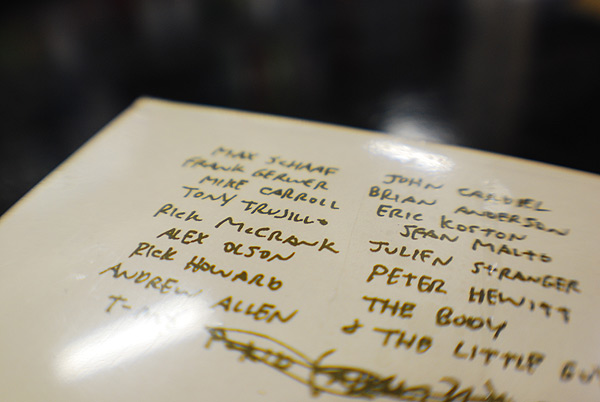 MAX SCHAAF
FRANK GERWER
MIKE CARROLL
TONY TRUJILLO
RICK McCRANK
ALEX OLSON
RICK HOWARD
ANDREW ALLEN
JOHN CARDIEL
BRIAN ANDERSON
ERIC KOSTON
SEAN MALTO
JULIEN STRANGER
PETER HEWITT
THE BODY
& THE LITTLE